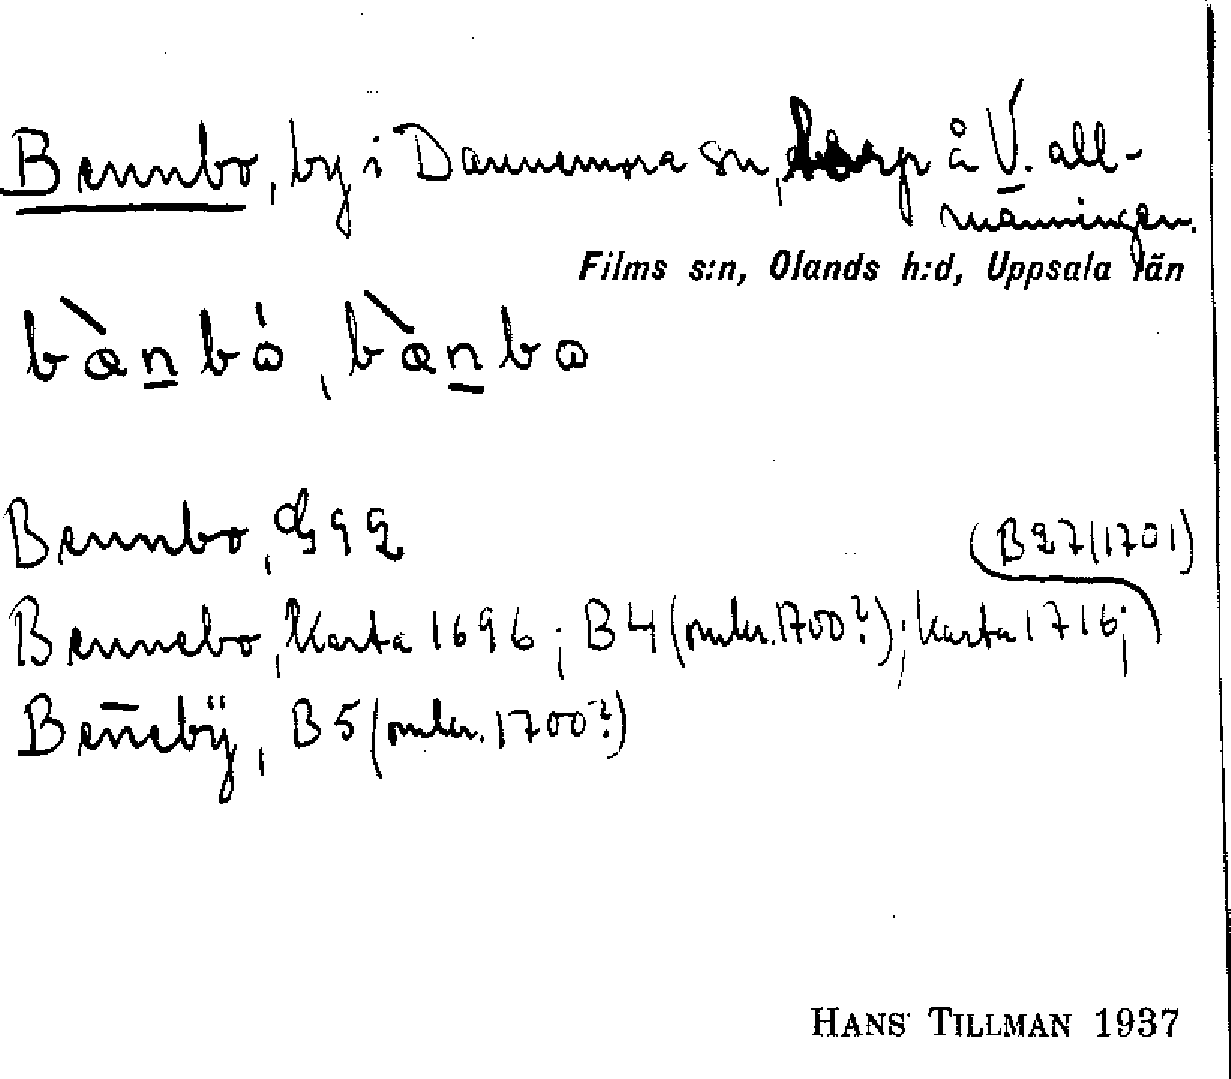 Bennbo, by i Dannemora sn, torp å V. all-
männingen.
Films s:n, Olands h:d, Uppsala län
bæ̀n̲bó, bæ̀n̲bo
Bennbo, GG2
(B27(1701)
Bennebo, Karta 1696; B4 (omkr. 1700?); karta 1716;
Beñebÿ, B5 (omkr. 1700?)
HANS TILLMAN 1937